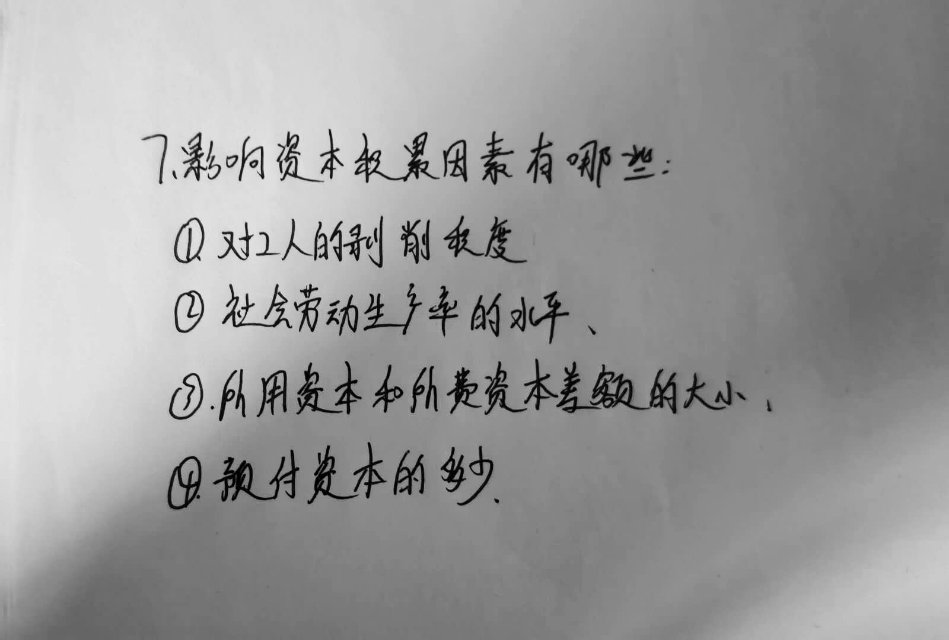 7.影响资本积累因素有哪些:
①对工人的剥削程度
②社会劳动生产率的水平、
③.所用资本和所费资本差额的大小,
④.预付资本的多少.